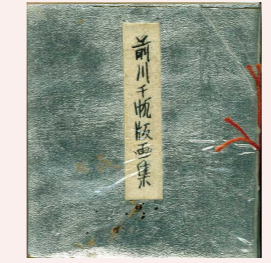 前川千帆版画集